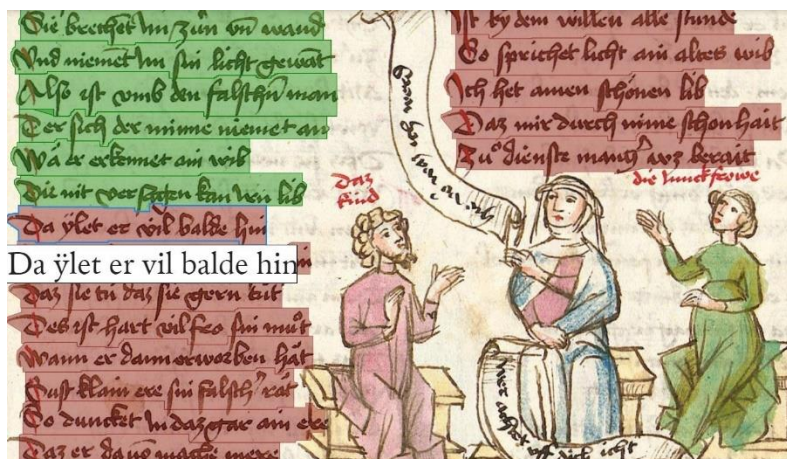 Sie brechet Im zûn vñ wand
Vnd niemet Im sin licht gewāt
Also ist vmb den falschñ man
Der sich der minne niemet an
Wa er erkennet ain wib
Die nit versagen kan irn lib
Da ÿlet er vil balde hin
Da ÿlet er vil balde hin
Daz sie tů daz sie gern tůt
Des ist hart vil fro sin můt
Wann er dann erworben hāt
Sust klain ere sin falsch' rāt
So duncket In daz gar ain ere
Daz er da võ mache mere
Ist by dem willen alle stunde
So sprichet licht ain altes wib
Ich het ainen schönen lib
Daz mir durch mine schonhait
Zů dienste manig' waz berait
daz kind
die Iunckfrowe